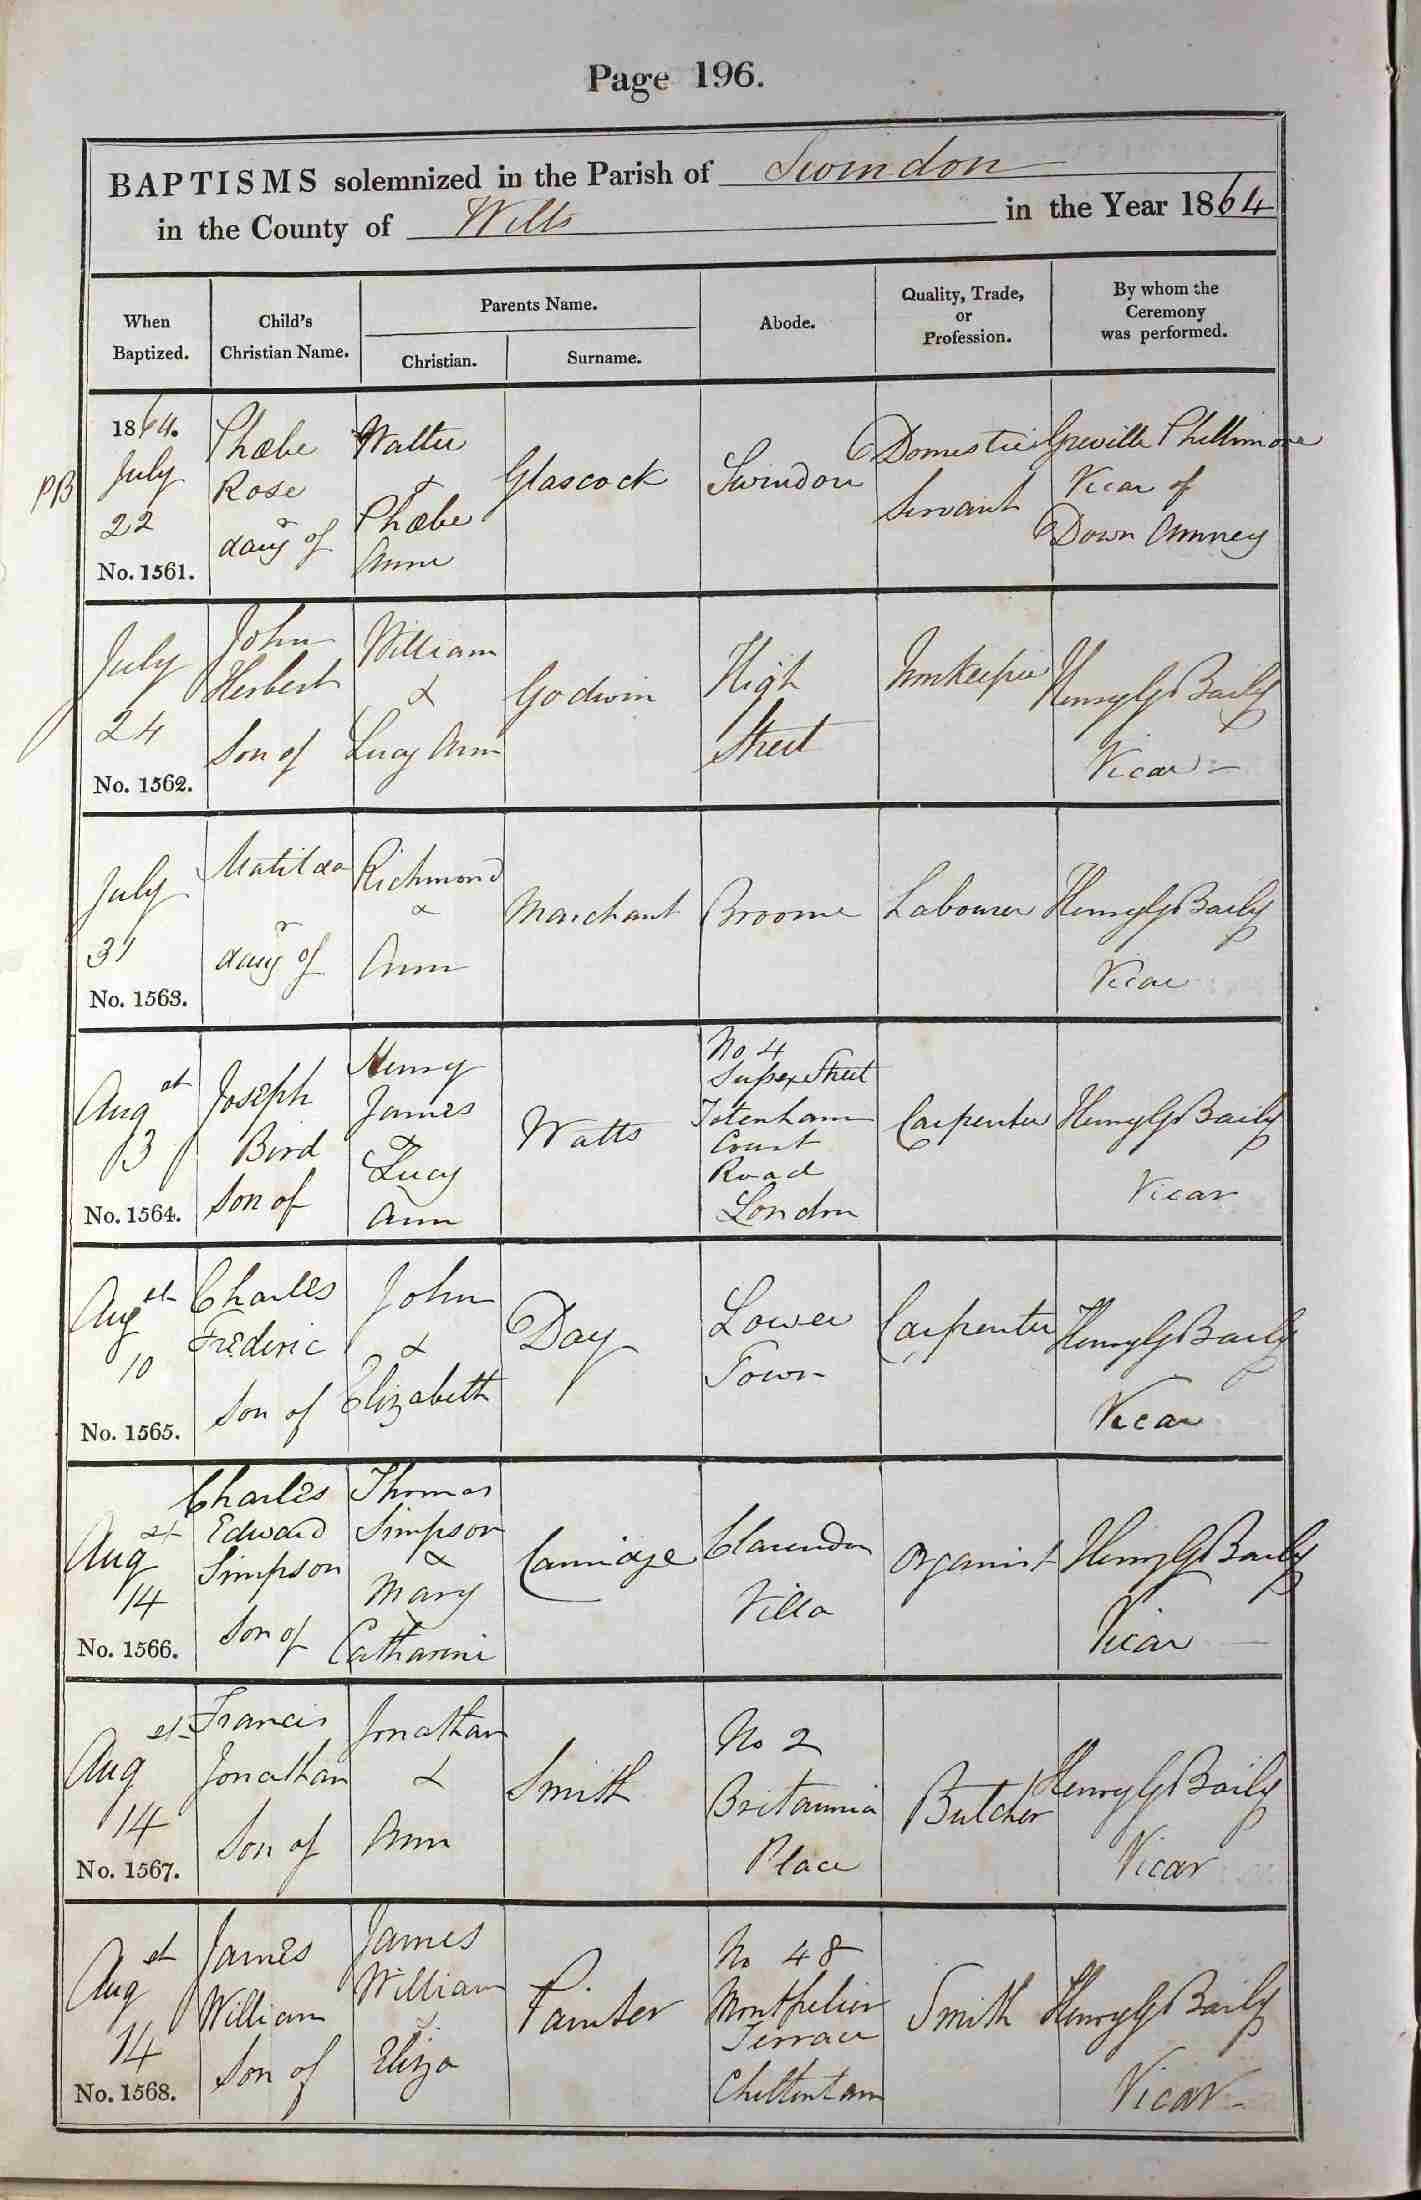 Page 196.
BAPTISMS solemnized in the Parish of Swindon
in the County of Wilts in the Year 1864
When Baptized.
Child's Christian Name.
Parents Name.
Christian.
Surname.
Abode.
Quality, Trade, or Profession.
By whom the Ceremony was performed.
PB
1864.
July
22
No. 1561.
Phœbe
Rose
daugr of
Walter
&
Phœbe
Anne
Glascock
Swindon
Domestic
Servant
Greville Phillimore
Vicar of
Down Amney
July
24
No. 1562.
John
Herbert
Son of
William
&
Lucy Ann
Godwin
High
Street
Innkeeper
Henry G Baily
Vicar
July
31
No. 1563.
Matilda
daugr of
Richmond
&
Ann
Marchant
Broome
Labourer
Henry G Baily
Vicar
Augst
3
No. 1564.
Joseph
Bird
Son of
Henry
James
&
Lucy
Ann
Watts
No 4
Sussex Street
Totenham
Court
Road
London
Carpenter
Henry G Baily
Vicar
Augst
10
No. 1565.
Charles
Frederic
Son of
John
&
Elizabeth
Day
Lower
Town
Carpenter
Henry G Baily
Vicar
Augst
14
No. 1566.
Charles
Edward
Simpson
Son of
Thomas
Simpson
&
Mary
Catharine
Camidge
Clarendon
Villa
Organist
Henry G Baily
Vicar
Augst
14
No. 1567.
Francis
Jonathan
Son of
Jonathan
&
Ann
Smith
No 2
Britannia
Place
Butcher
Henry G Baily
Vicar
Augst
14
No. 1568.
James
William
Son of
James
William
&
Eliza
Painter
No 48
Montpelier
Terrace
Cheltenham
Smith
Henry G Baily
Vicar